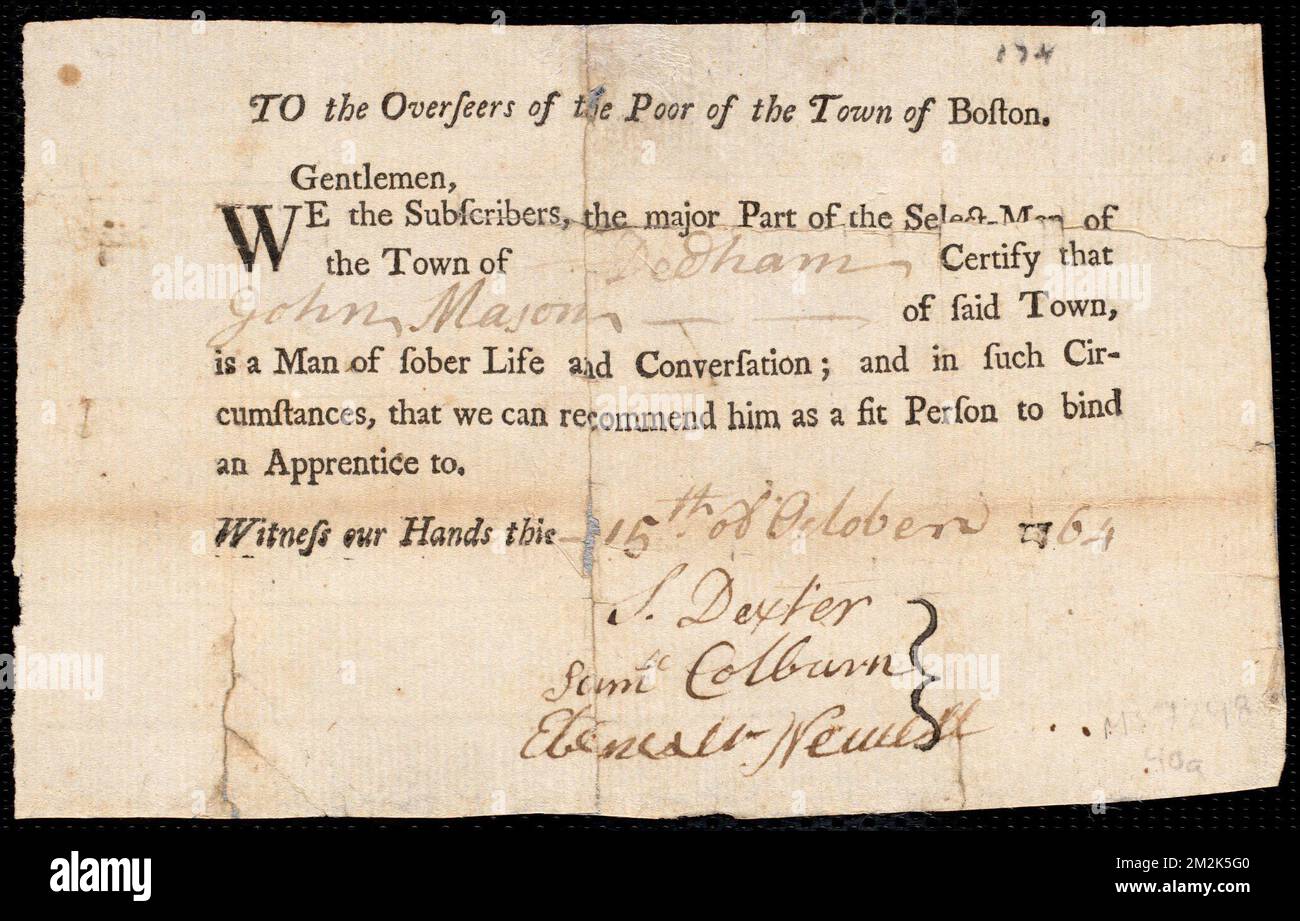 174
TO the Overſeers of the Poor of the Town of Boſton.
Gentlemen,
WE the Subſcribers, the major Part of the Select-Men of
the Town of Dedham Certify that
John Mason — — of ſaid Town,
is a Man of ſober Life and Converſation; and in ſuch Cir-
cumſtances, that we can recommend him as a fit Perſon to bind
an Apprentice to.
Witneſs our Hands this 15th of October 1764
S. Dexter
Saml Colburn
Ebenezer Newell
Ms 1248
40a
alamy
Image ID: 2M2K5G0
www.alamy.com